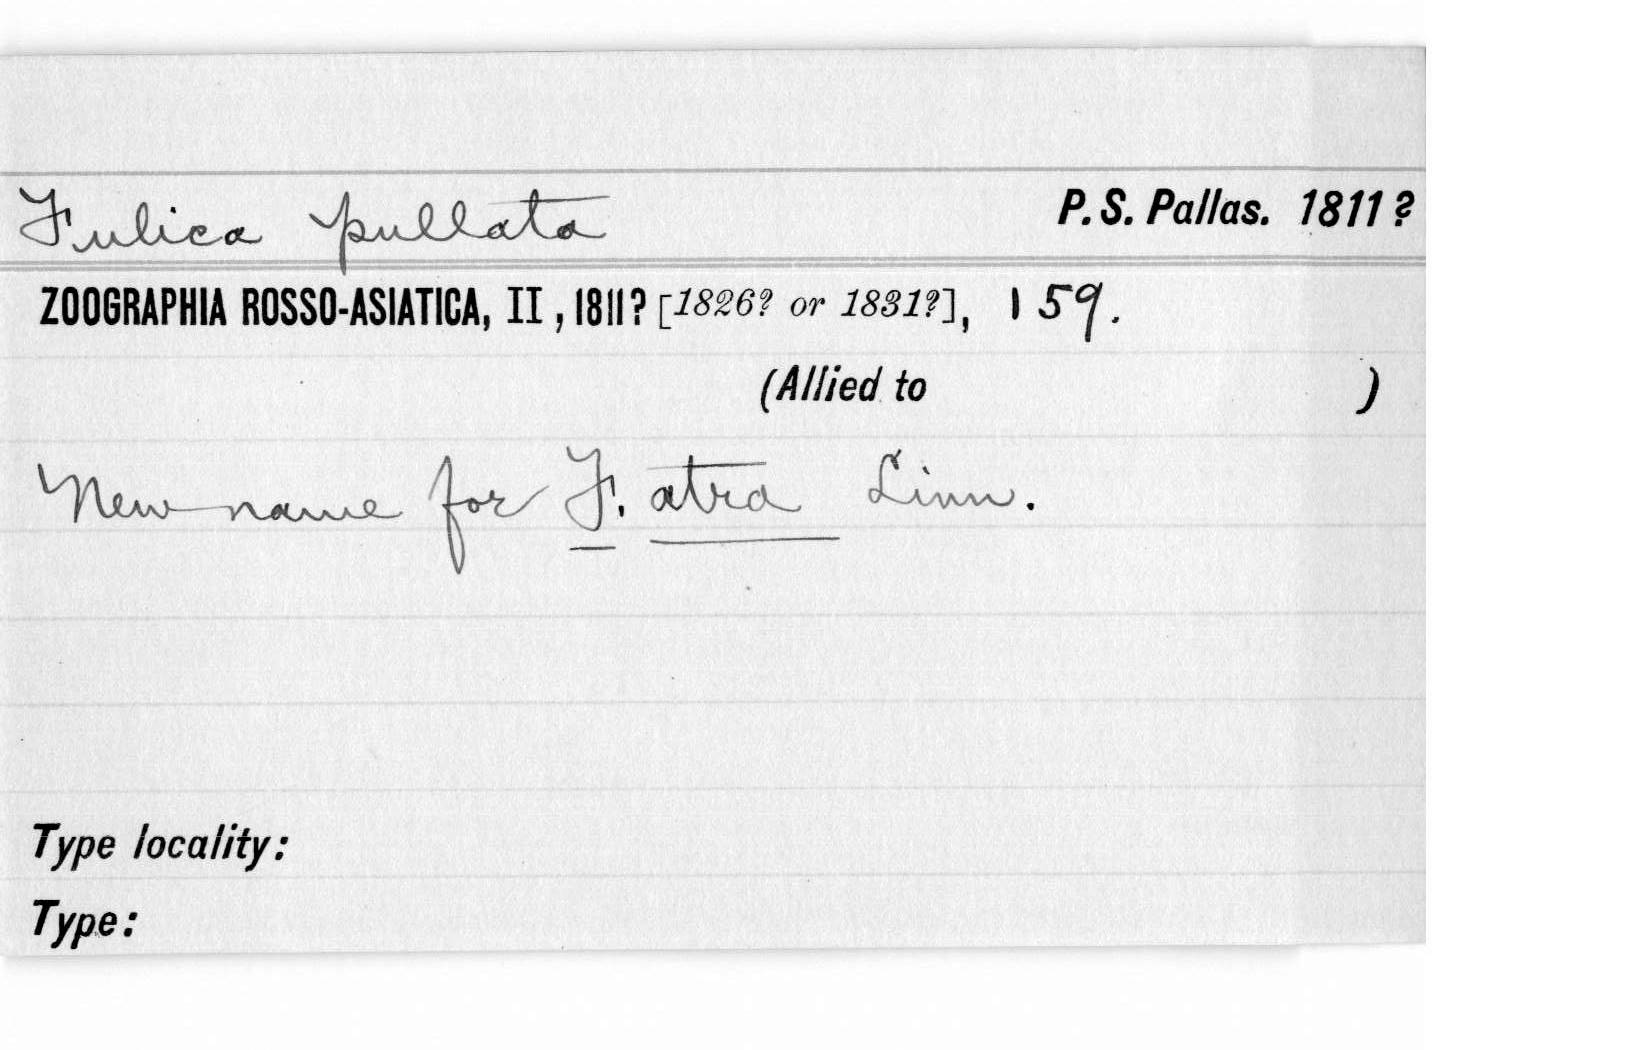 Fulica pullata P. S. Pallas. 1811?
ZOOGRAPHIA ROSSO-ASIATICA, II, 1811? [1826? or 1831?], 159.
(Allied to )
New name for F. atra Linn.
Type locality:
Type: